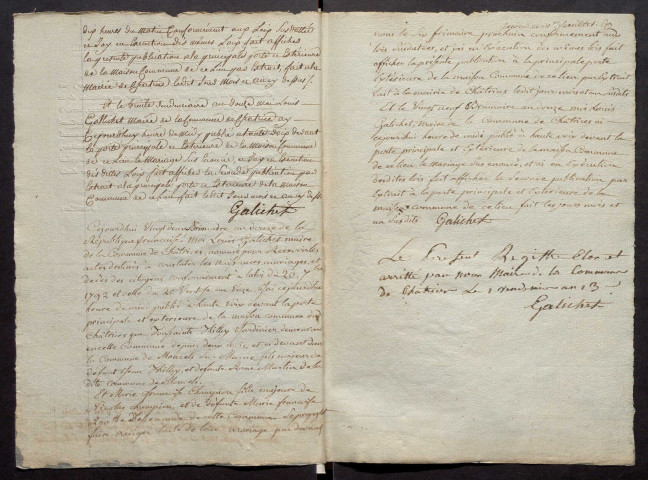 dix heures du matin Conformement aux Loix Susdattées
et J'ay en Execution des mêmes Loix fait afficher
la presente publication a la principale porte et Exterieure
de la Maison Commune de ce Lieu par Extrait, fait a la
Mairie de Chartrice ledit Jour Mois et an cy dessus
Et le trente dudit an douze moi Louis
Galichet Maire de la Commune de Chartrice ay
Cejourdhuy heure de Midy publié a haute voix devant
la porte principale et Exterieure de la Maison Commune
de ce Lieu le Mariage sus Enoncé, et J'ay en Execution
des dittes Loix fait afficher la Seconde publication par
Extrait a la principale porte et Exterieure de la Maison
Commune de ce Lieu fait ledit Jour mois et an cy dessus
Galichet
Cejourd'hui Vingt deux Brumaire an onze de la
République française Moi Louis Galichet maire
de la Commune de Châtrices, nommé pour Recevoir les
actes destinés à constater les naissances mariages, et
décès des citoyens conformement à la loi du 20 7bre
1792 et celle du
heure de midi publié à haute voix devant la porte
principale et exterieure de la maison commune de
Châtrices que Toussaint Thilloy Jardinier demeurant
en cette Commune depuis deux et ci devant dans
la Commune de Mareuil sur Marne, fils majeur de
défunt Jean Thilloy, et défunte Anne Martin de la
dite commune de Mareuil.
Et Marie françoise Champion fille majeure de
Nicolas Champion, et de défunte Marie françoise
de cette Commune Se proposent
faire rediger l'acte de leur mariage par devant
nous le dix frimaire prochain conformement aux
lois Susdatées, et j'ai en Execution des mêmes lois fait
afficher la présente publication à la principale porte
extérieure de la maison Commune de ce lieu par Extrait
fait à la mairie de Châtrices ledit jour mois et an susdits
Et le Vingt neuf Brumaire an onze moi Louis
Galichet, Maire de la Commune de Châtrices ai
cejourdhui heure de midi publié à haute voix devant la
porte principale et Exterieure de la maison Commune
de ce lieu le mariage sus énoncé, et ai en Exécution
desdites lois fait afficher la seconde publication par
Extrait à la porte principale et Exterieure de la
maison commune de ce lieu fait les jour mois et
an susdits Galichet
Le Present Registre Clos et
arretté par nous Maire de la Commune
de Chatrice Le 1 vendmier an 13
Galichet